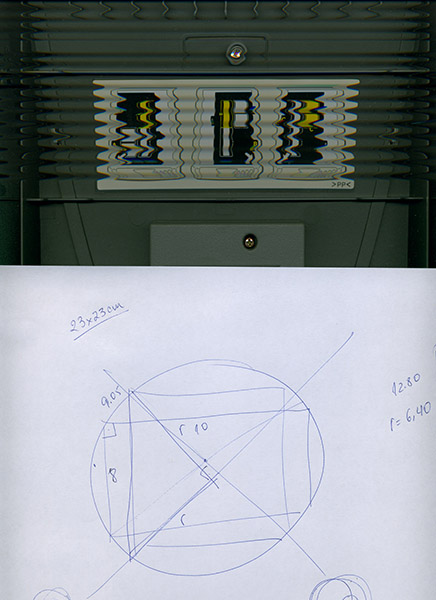 >PP<
23x23cm
9.05
r 10
12.80
r=6,40
8
r